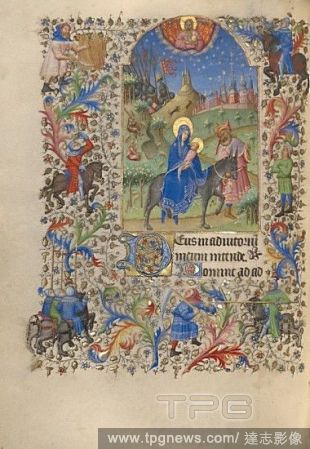 Deus in adiutoriu
meum intende. R
Domine ad ad
TPG
www.tpgnews.com/ 達志影像